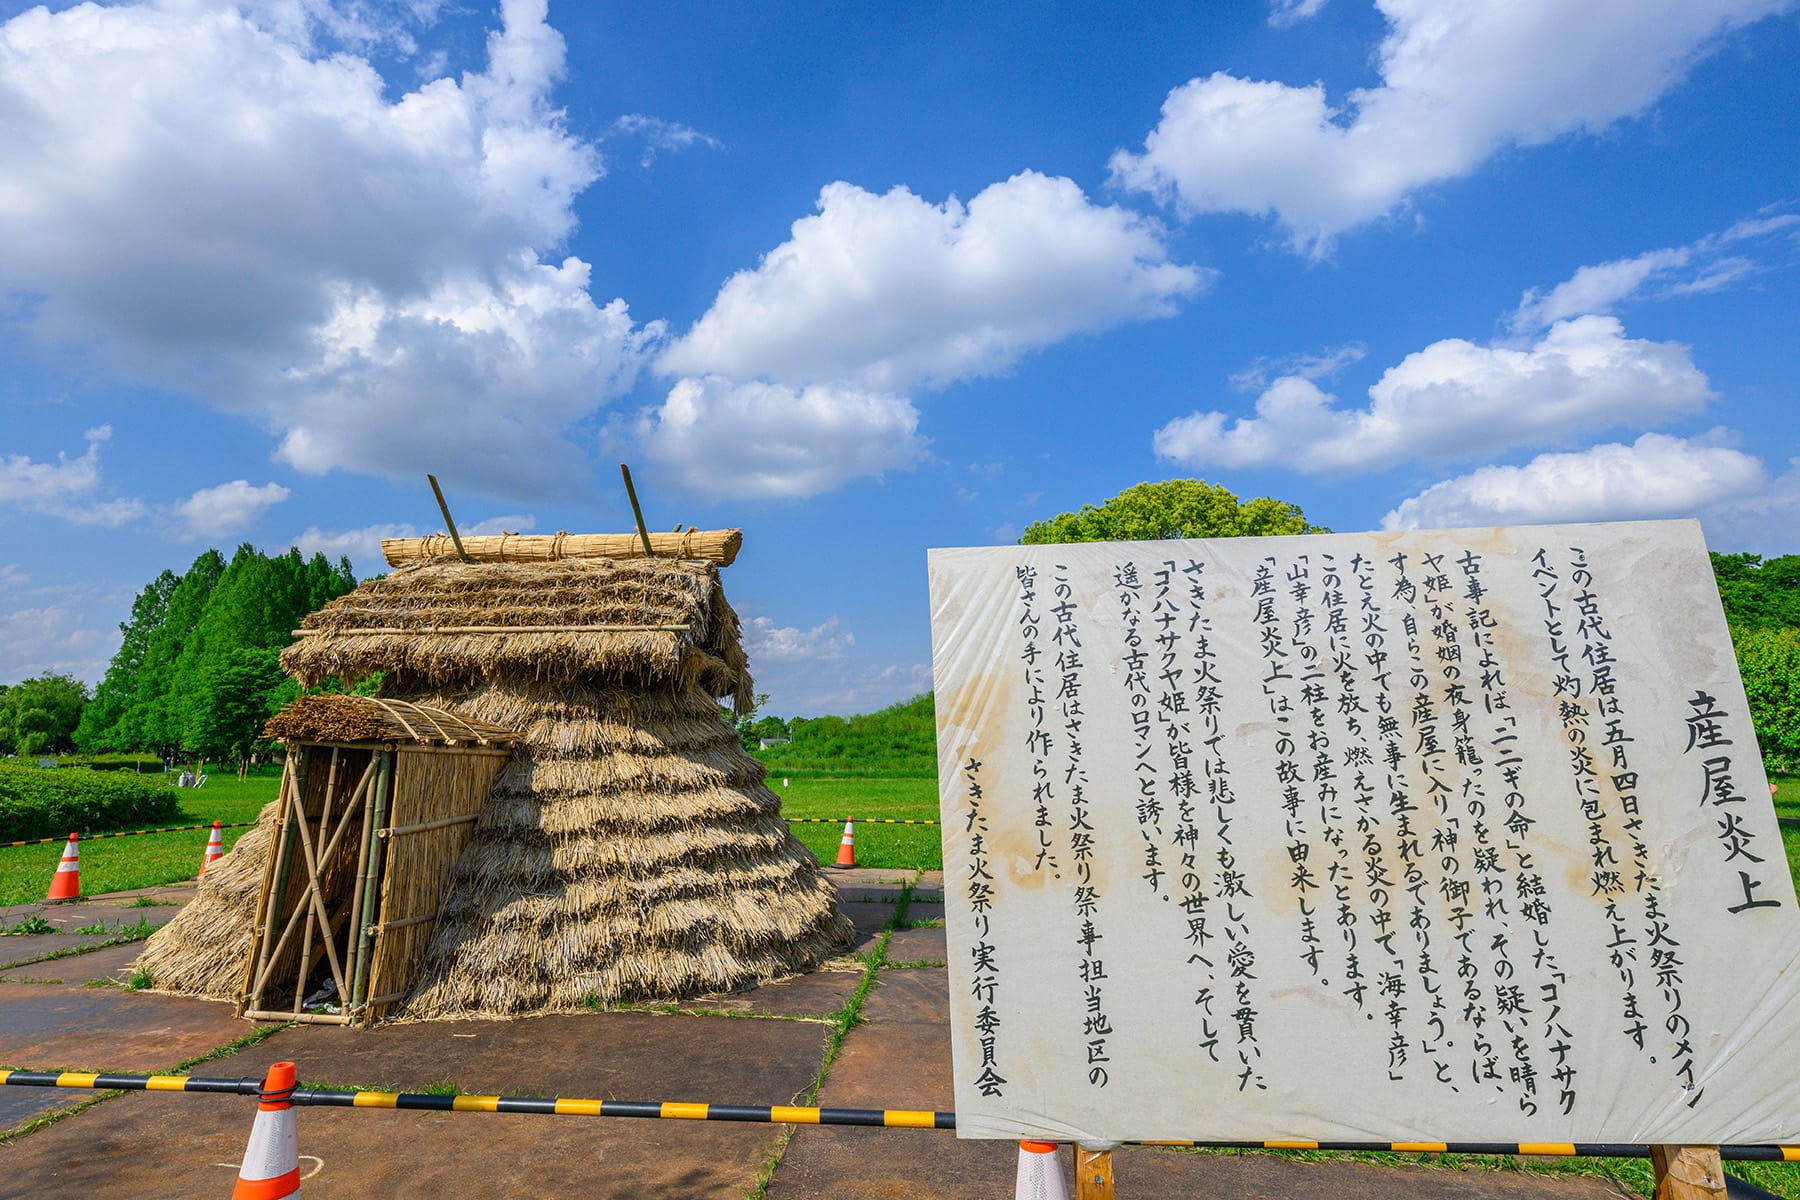 産屋炎上
この古代住居は五月四日さきたま火祭りのメイン
イベントとして灼熱の炎に包まれ燃え上がります。
古事記によれば「ニニギの命」と結婚した「コノハナサク
ヤ姫」が婚姻の夜身籠ったのを疑われ、その疑いを晴ら
す為、自らこの産屋に入り「神の御子であるならば、
たとえ火の中でも無事に生まれるでありましょう。」と、
この住居に火を放ち、燃えさかる炎の中で「海幸彦」
「山幸彦」の二柱をお産みになったとあります。
「産屋炎上」はこの故事に由来します。
さきたま火祭りでは悲しくも激しい愛を貫いた
「コノハナサクヤ姫」が皆様を神々の世界へ、そして
遥かなる古代のロマンへと誘います。
この古代住居はさきたま火祭り祭事担当地区の
皆さんの手により作られました。
さきたま火祭り実行委員会